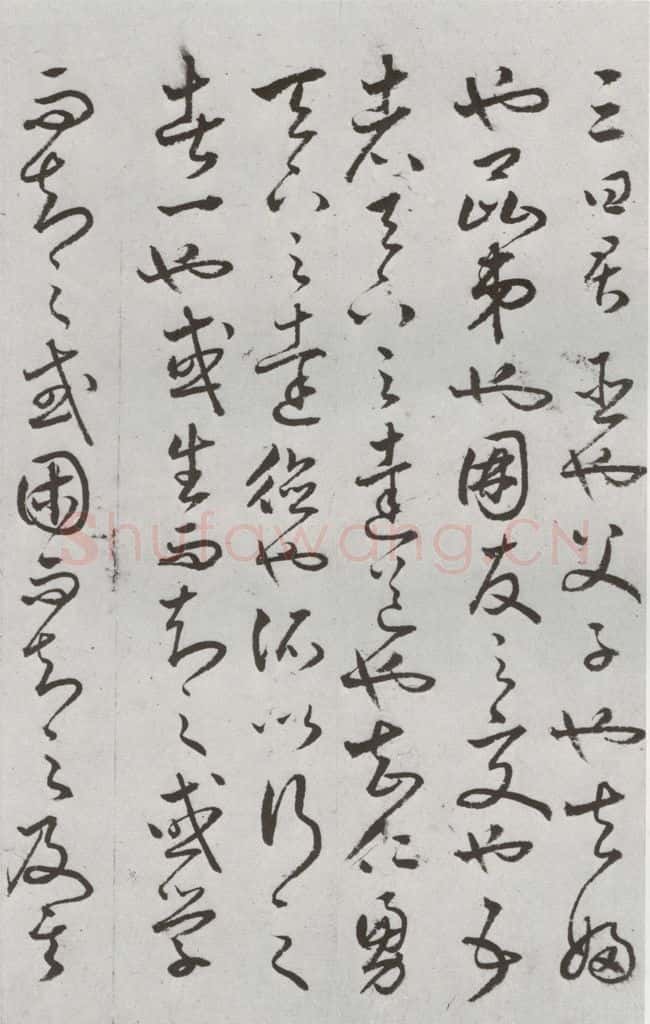 三曰君臣也父子也夫婦
也昆弟也朋友之交也五
者天下之達道也知仁勇
天下之達德也所以行之
者一也或生而知之或学
而知之或困而知之及其
Shufawang.CN